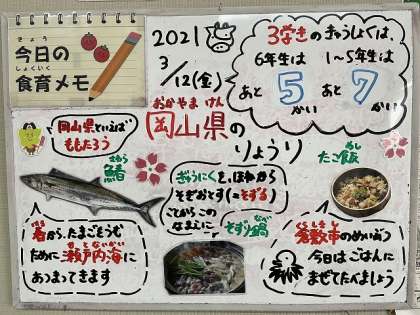 きょう
今日の
しょくいく
食育メモ
2021
3/12(金)
3学きのきゅうしょくは、
6年生は
あと5かい
1〜5年生は
あと7かい
おかやま けん
岡山県の
りょうり
岡山県といえば
ももたろう
さわら
鰆
春から、たまごをうむ
ために瀬戸内海に
あつまってきます
ぎゅうにくを、ほねから
そぎおとす(=そずる)
ことから この
なまえに
そずり鍋
なべ
たこ飯
めし
くらしきし
倉敷市のめいぶつ
今日はごはんに
まぜてたべましょう